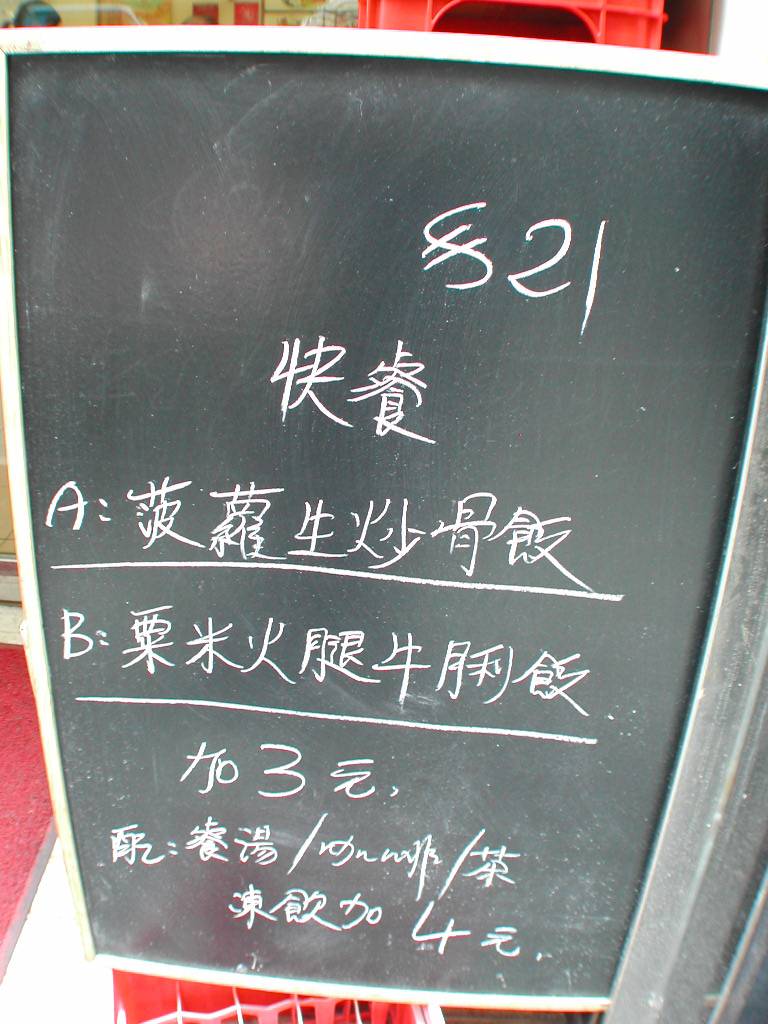 $21
快餐
A: 菠蘿生炒骨飯
B: 粟米火腿牛脷飯
加3元.
配: 餐湯/咖啡/茶
凍飲加4元.